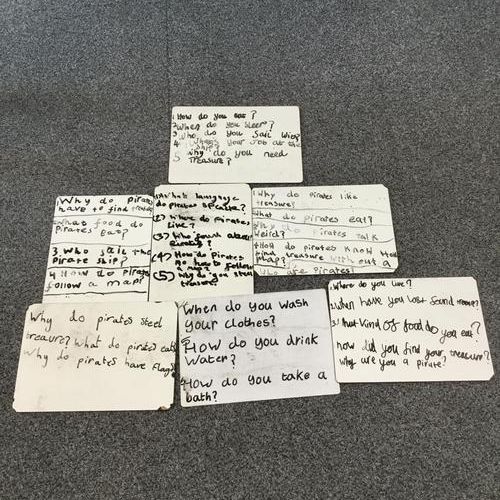 1 How do you eat?
2 When do you sleep?
3 Who do you sail with?
4 Whens your Job at the
ship?
5 why do you need
treasure?
Why do pirates
have to find treasure
What food do
pirates eat?
3. Who sail the
Pirate ship?
4 How do pirate
follow a map?
(1) What language
do pirates speake?
(2) Where do pirates
live?
(3) Who found about
pirates?
(4) How do pirates
no how to follow
a map?
(5) Why do you steal
treasure?
1 Why do pirates like
treasure?
What do pirates eat?
Why do Pirates talk
weird?
How do pirates know how
find treasure with out a
map?
who are pirates?
Why do pirates steel
treasure? What do pirates eat?
Why do pirates have flags
When do you wash
your clothes?
How do you drink
water?
How do you take a
bath?
Where do you live?
2. when have you lost sound treasure?
3. What Kind OF food do you eat?
how did you find your treasure?
why are you a pirate?